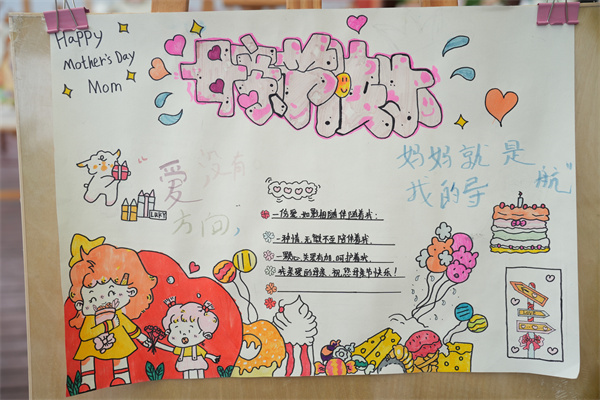 Happy
Mother's Day
Mom
“爱没有
方向,
妈妈就是
我的导航”
一份爱,如影相随伴随着我;
一种情,无微不至陪伴着我,
一颗心,关爱有加,呵护着我,
我亲爱的母亲,祝您母亲节快乐!